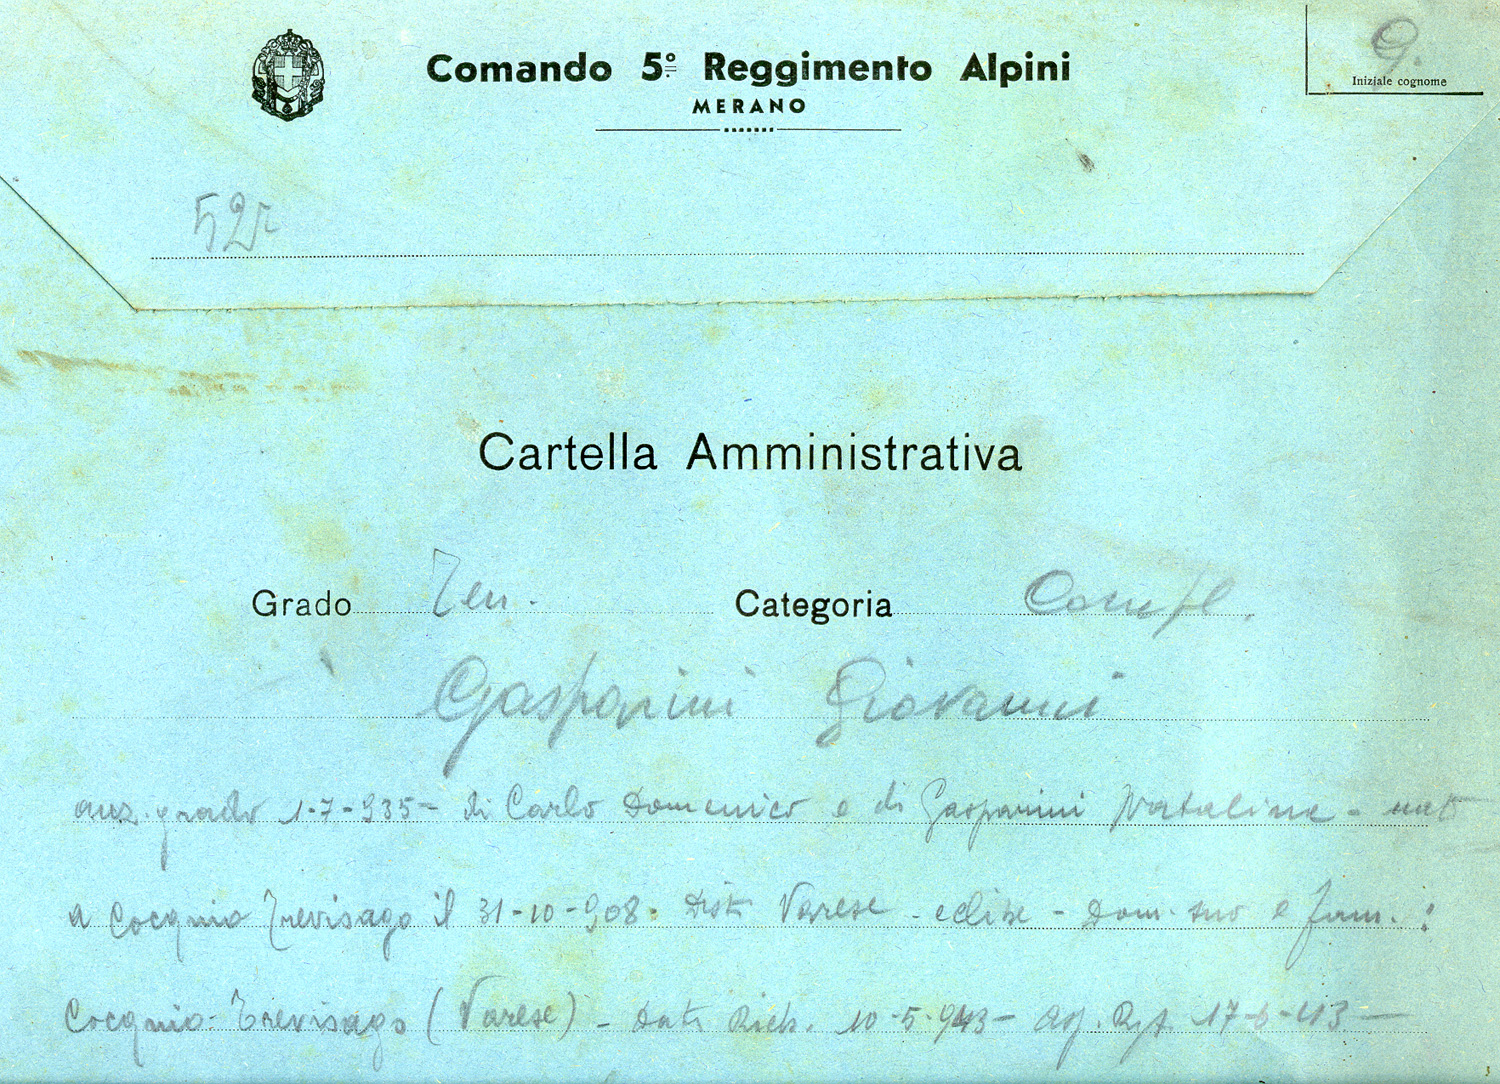 Comando 5º Reggimento Alpini
MERANO
G.
Iniziale cognome
52
Cartella Amministrativa
Grado Ten. Categoria Compl.
Gasparini Giovanni
anz. grado 1-7-935- di Carlo Domenico e di Gasparini Natalina - nato
a Cocquio Trevisago il 31-10-908. Dist. Varese - celibe - Dom. suo e fam. :
Cocquio- Trevisago (Varese) - Data Rich. 10-5-943- 17-6-43-